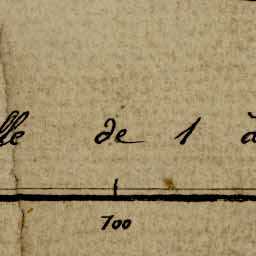 lle de 1 à
700